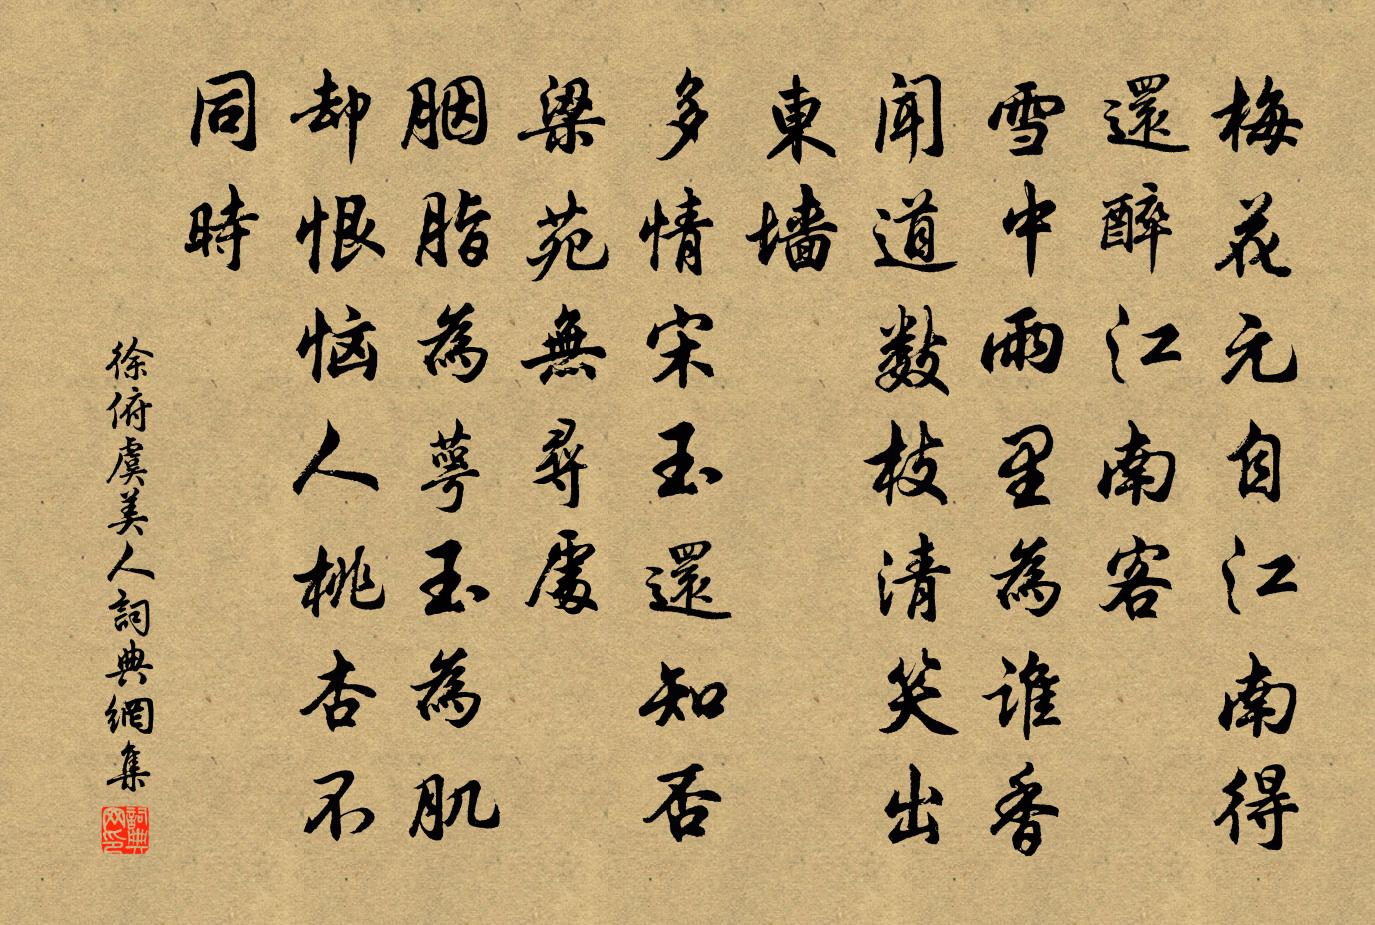 梅花元自江南得
還醉江南客
雪中雨里為誰香
聞道數枝清笑出
東墙
多情宋玉還知否
梁苑無尋處
胭脂為萼玉為肌
却恨恼人桃杏不
同時
徐俯虞美人詞典網集
詞典网印